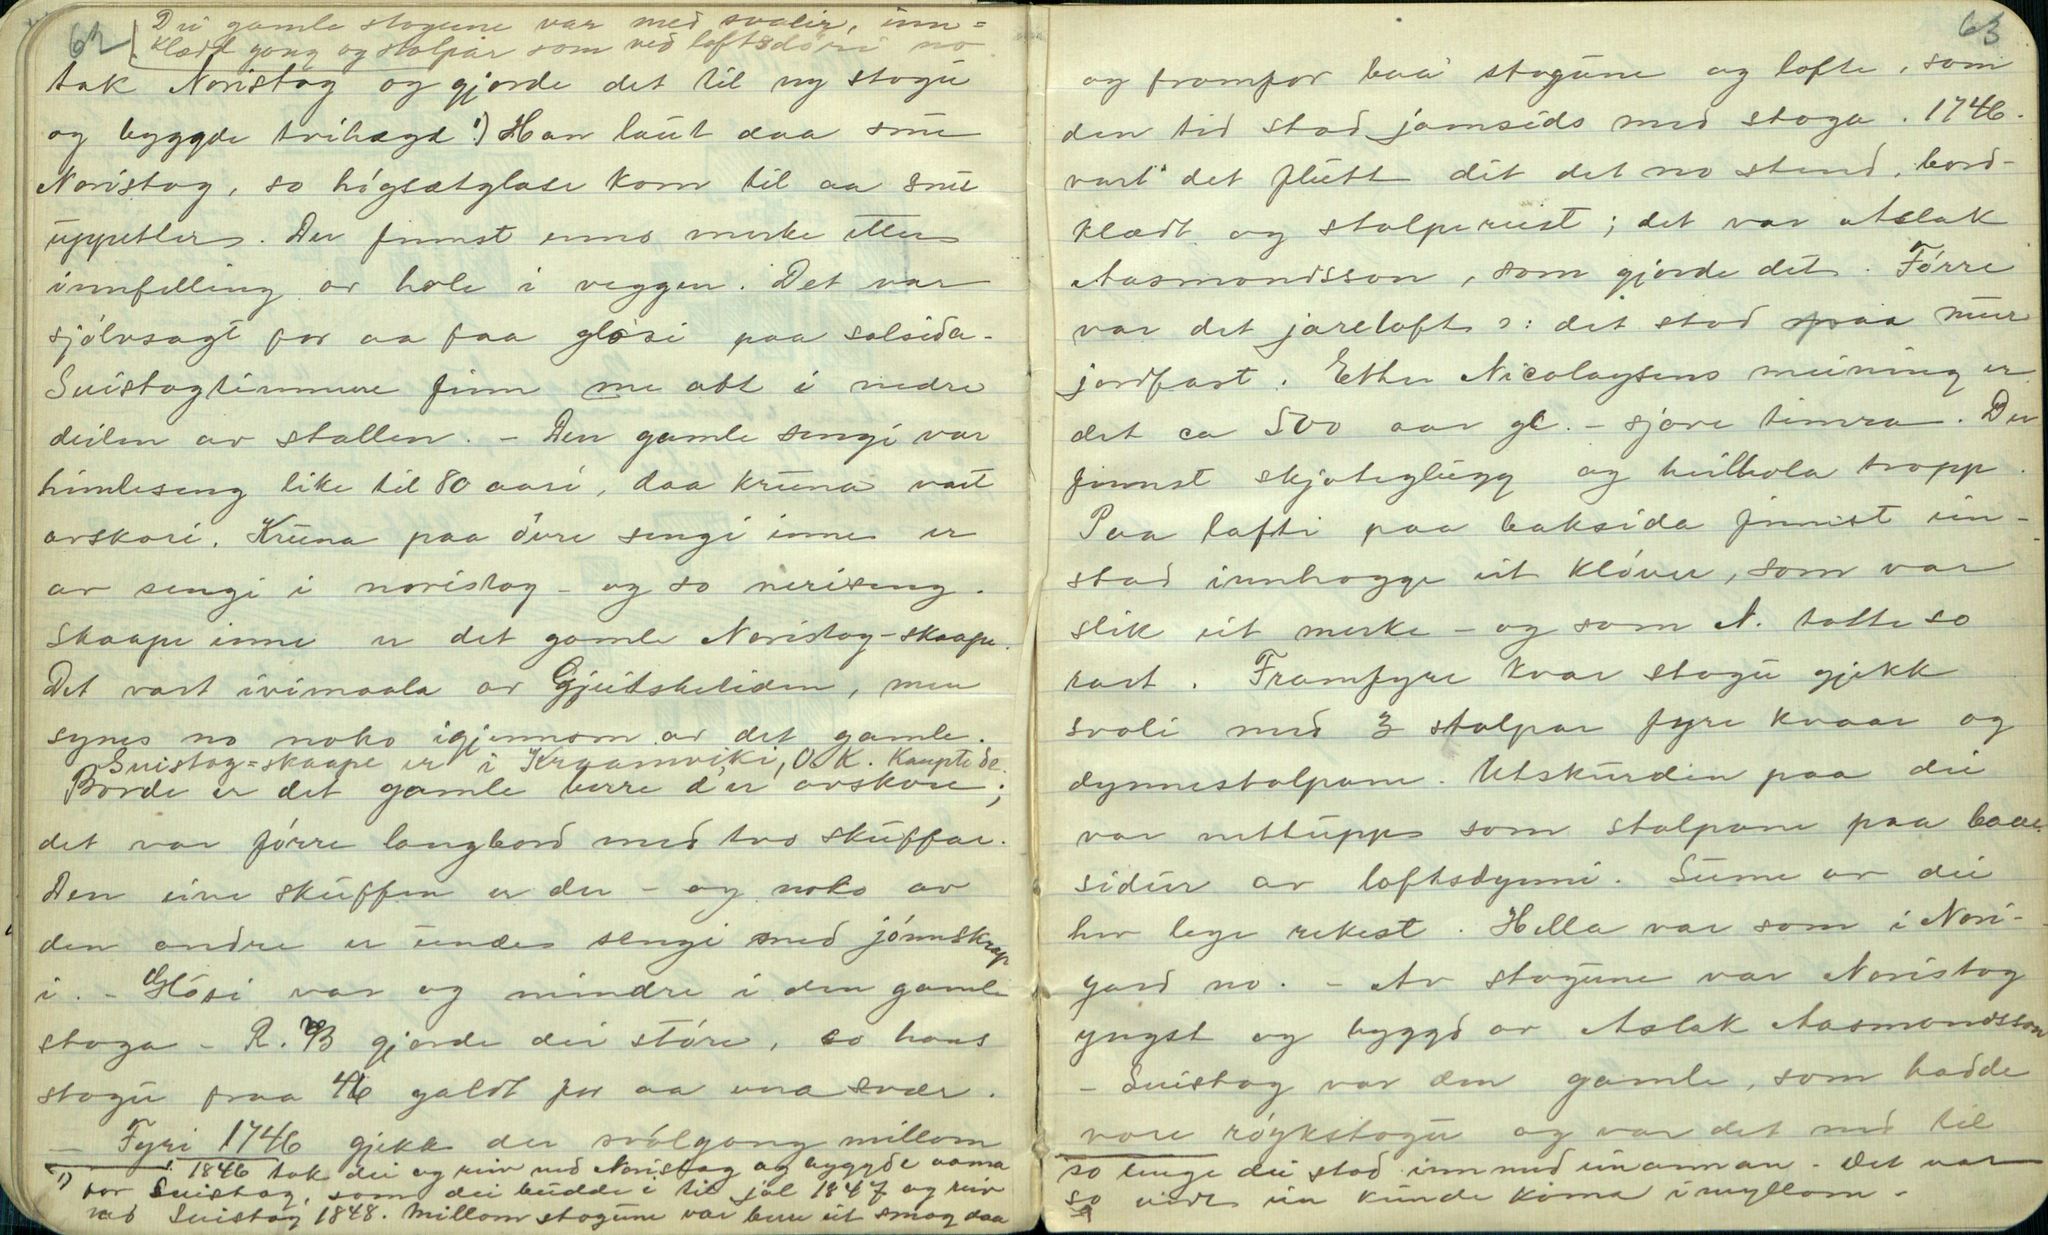 62
Dei gamle stogune var med svalir, inn=
klædt gong og stolpar som ved loftsdóri no
tok Noristog og gjorde det til ny stogu
og byggde tvihøgd.¹) Han laut daa snu
Noristog, so högsætglase kom til aa snu
uppetter. Der finnst enno merke etter
innfelling or hole i veggen. Det var
sjölvsagt for aa faa glósi paa solsida.
Suistogtimmere finn me att i nedre
deilen av stallen. - Den gamle sengi var
himleseng like til 80 aari, daa kruna vart
avskori. Kruna paa övre sengi inne er
av sengi i noristog - og so neriseng.
Skaape inne er det gamle Noristog-skaape.
Det vart ivimaala av Gjuitskeliden, men
synes no noko igjennom av det gamle.
Suistog=skaape er i Kraamviki, O. K. kaupte de.
Borde er det gamle berre d'er avskore;
det var förre langbord med tvo skuffar.
Den eine skuffen er der - og noko av
den andre er under sengi med jönnskrap
i. - Glósi var og mindre i den gamle
stoga - R. B gjorde dei störe, so hans
stogu fraa 46 galdt for aa vera svær.
- Fyri 1746 gjekk der svólgong millom
¹) i 1846 tok dei og reiv ned Noristog og byggde aama
for Suistog, som dei budde i til jol 1847 og reiv
ned Suistog 1848. Millom stogune var berre eit smog daa
63
og framfor baa stogune og lofte, som
den tid stod jamsids med stoga. 1746.
vart det flutt dit det no stend, bord-
klædt og stolpereist; det var Aslak
Aasmondsson, som gjorde det. Fórre
var det jareloft ɔ: det stod paa mur
jordfast. Etter Nicolaysens meining er
det ca 500 aar gl. - sjøve timra. Der
finnst skjoteglugg og heilhola tropp.
Paa lofti paa baksida finnst ein-
stad innhogge eit klóver, som var
slik eit merke - og som N. totte so
rart. Framfyre kvar stogu gjekk
svoli med 3 stolpar fyre kvaar og
dynnestolpane. Utskurdin paa dei
var nettupp som stolpane paa baae
sidur av loftsdynni. Sume av dei
hev lege rekest. Hella var som i Nori-
gard no. - Av stogune var Noristog
yngst og byggd av Aslak Aasmondsson
- Suistog var den gamle, som hadde
vore röykstogu og var det med til
so lenge dei stod inn med einannan. Det var
so vidt ein kunde koma imyllom -